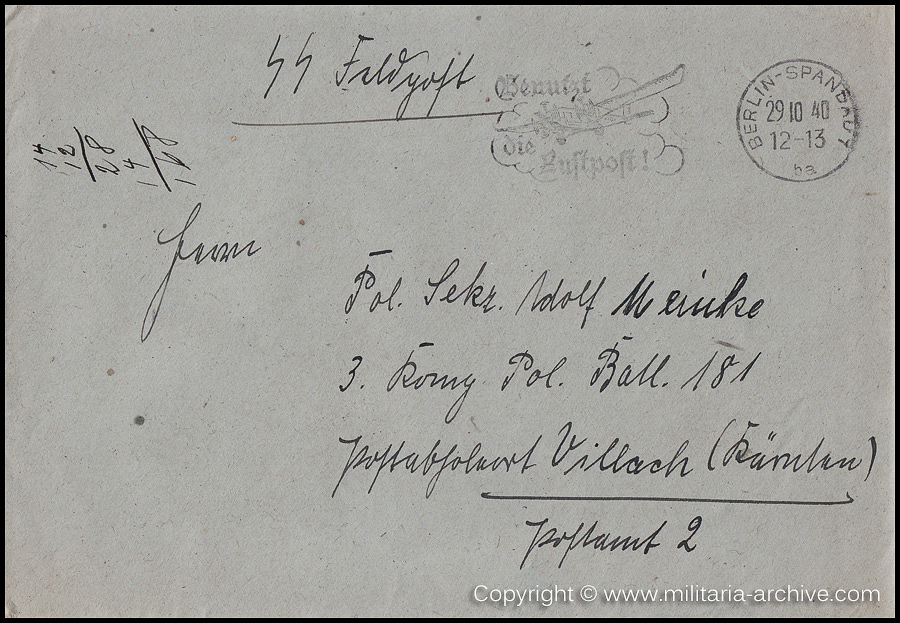 SS Feldpost
Benutzt
die
Luftpost!
BERLIN-SPANDAU 1
29 10 40
12-13
ha
Herrn
Pol. Sekr. Adolf Meinke
3. Komp. Pol. Batl. 181
Postabholeort Villach (Kärnten)
Postamt 2
Copyright © www.militaria-archive.com